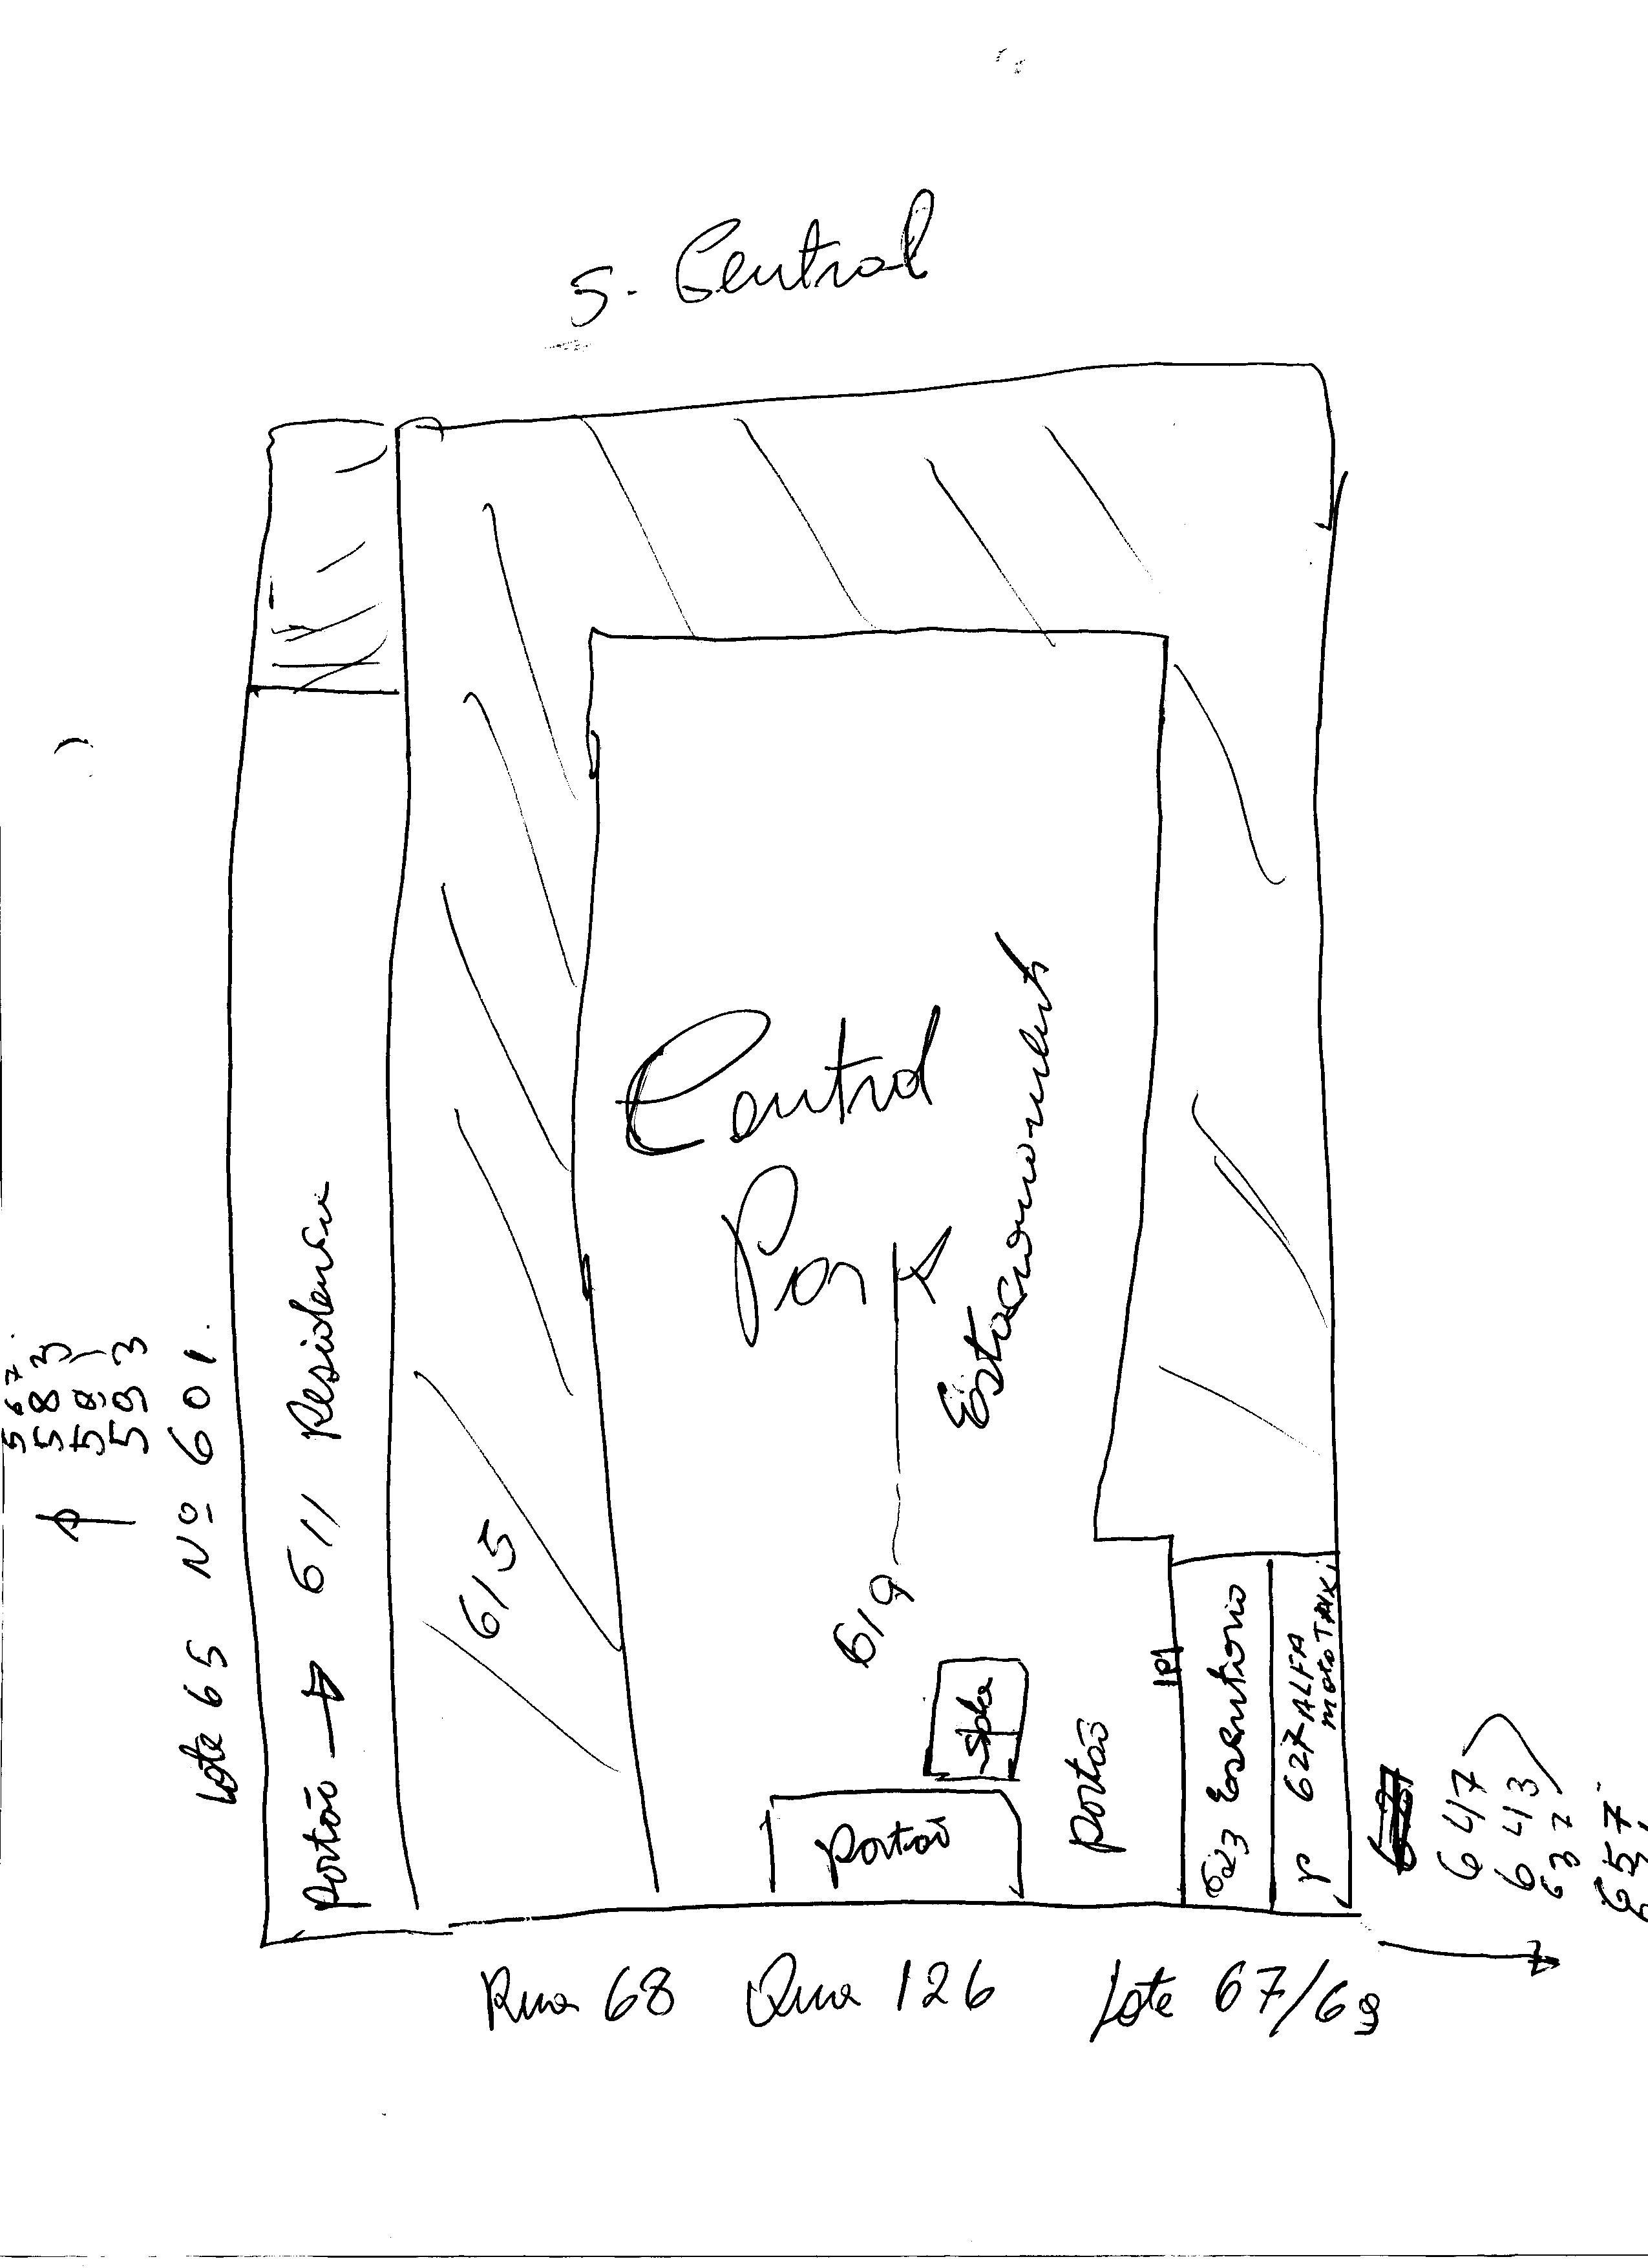 S. Central
Central
Park
Estacionamento
619
Portão
Portão
615
Portão → 611 Residensia
Lote 65 Nº 601.
567
583
593
623 Escritorio
627 ALFA
MOTO TAXI
647
643
637
657
Rua 68 Qua 126 Lote 67/69